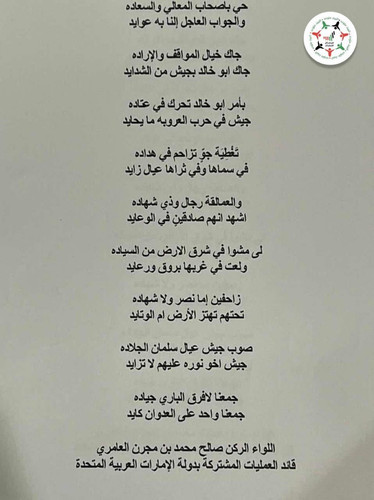 حي باصحاب المعالي والسعاده
والجواب العاجل إلنا به عوايد
جاك خيال المواقف والإراده
جاك ابو خالد بجيش من الشدايد
بأمر ابو خالد تحرك في عتاده
جيش في حرب العروبه ما يحايد
تغطية جوٍ تزاحم في هداده
في سماها وفي ثراها عيال زايد
والعمالقة رجال وذي شهاده
اشهد انهم صادقينٍ في الوعايد
لى مشوا في شرق الارض من السياده
ولعت في غربها بروق ورعايد
زاحفين إما نصر ولا شهاده
تحتهم تهتز الأرض ام الوتايد
صوب جيش عيال سلمان الجلاده
جيش اخو نوره عليهم لا تزايد
جمعنا لافرق الباري جياده
جمعنا واحد على العدوان كايد
اللواء الركن صالح محمد بن مجرن العامري
قائد العمليات المشتركة بدولة الإمارات العربية المتحدة